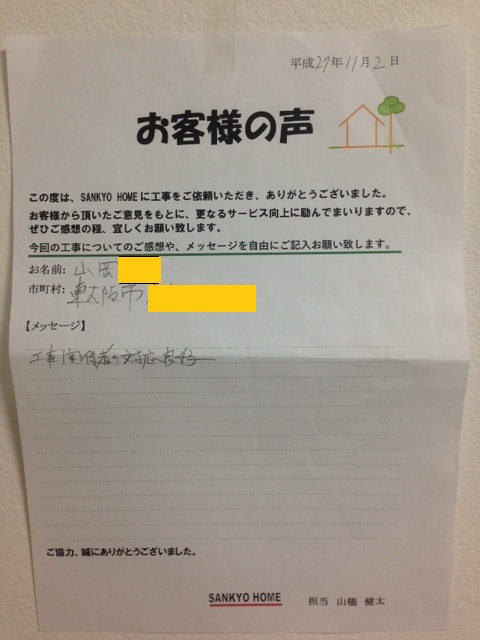 平成27年11月2日
お客様の声
この度は、SANKYO HOMEに工事をご依頼いただき、ありがとうございました。
お客様から頂いたご意見をもとに、更なるサービス向上に励んでまいりますので、
ぜひご感想の程、宜しくお願い致します。
今回の工事についてのご感想や、メッセージを自由にご記入お願い致します。
お名前: 山岡
市町村: 東大阪市
【メッセージ】
工事関係者の対応良好
ご協力、誠にありがとうございました。
SANKYO HOME 担当 山橋 健太